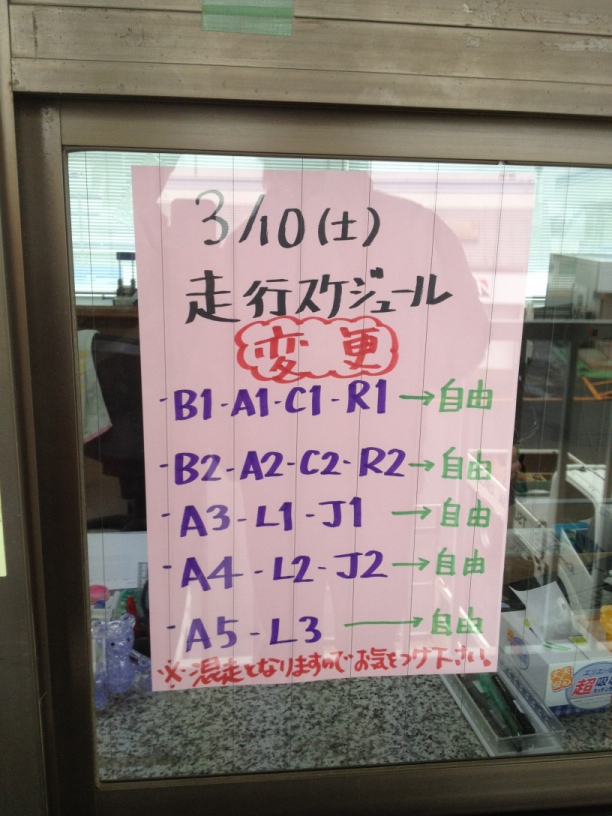 3/10(土)
走行スケジュール
変更
-B1-A1-C1-R1→自由
-B2-A2-C2-R2→自由
-A3-L1-J1→自由
-A4-L2-J2→自由
-A5-L3→自由
※混走となりますのでお気をつけ下さい。
超吸収